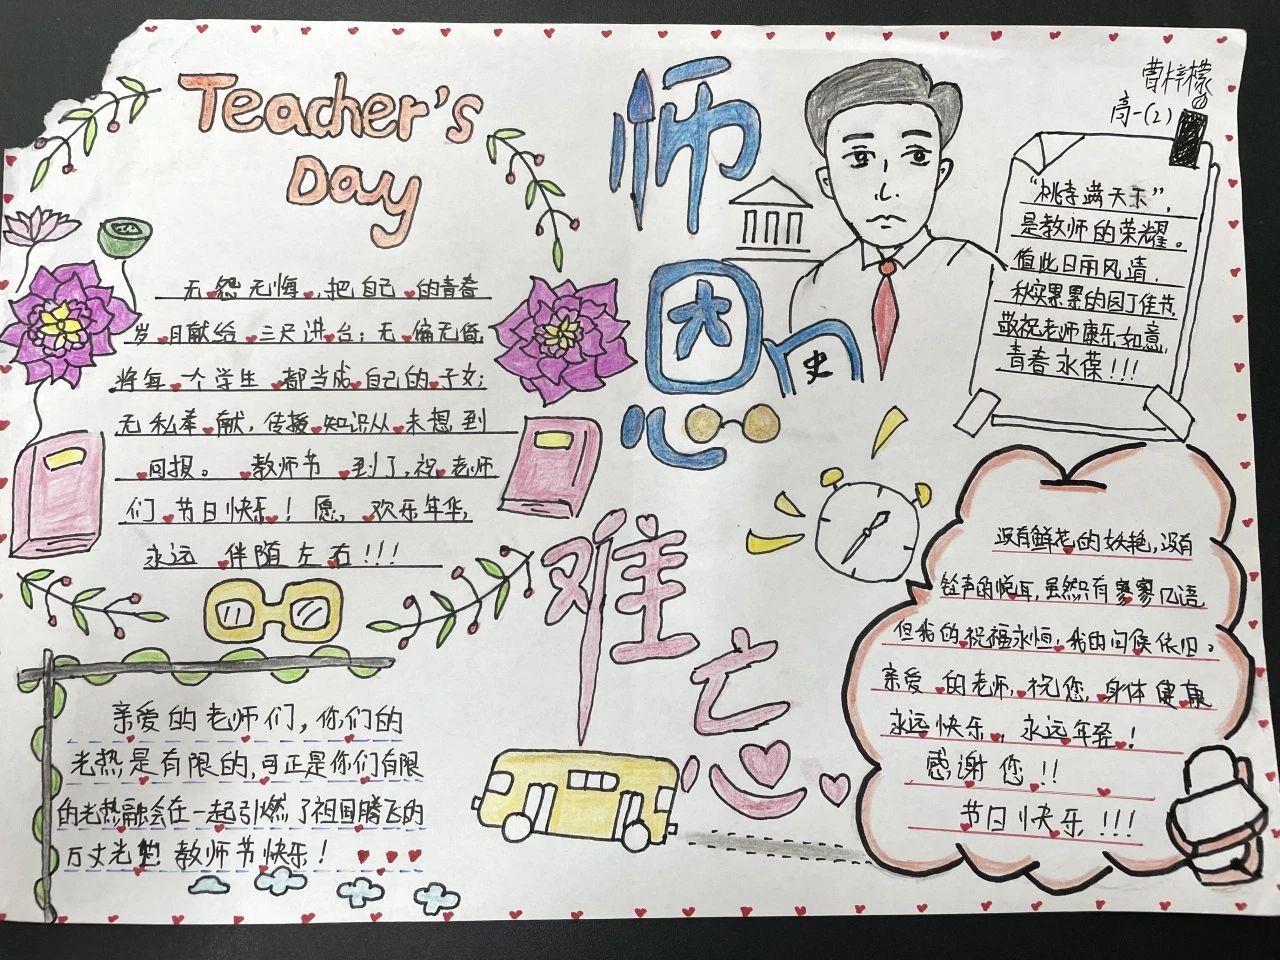 Teacher's
Day
师恩难忘
史
曹梓檬
高一(2)
无怨无悔,把自己的青春
岁月献给三尺讲台;无偏无倚,
将每个学生都当成自己的子女;
无私奉献,传授知识从未想到
回报。教师节到了,祝老师
们节日快乐!愿,欢乐年华,
永远伴随左右!!!
"桃李满天下",
是教师的荣耀。
值此日丽风清,
秋实累累的园丁佳节,
敬祝老师康乐如意,
青春永葆!!!
亲爱的老师们,你们的
光热是有限的,可正是你们有限
的光热融会在一起引燃了祖国腾飞的
万丈光芒!教师节快乐!
没有鲜花的妖艳,没有
铃声的悦耳,虽然只有寥寥几语
但我的祝福永恒,我的问候依旧。
亲爱的老师,祝您,身体健康
永远快乐,永远年轻!
感谢您!!
节日快乐!!!